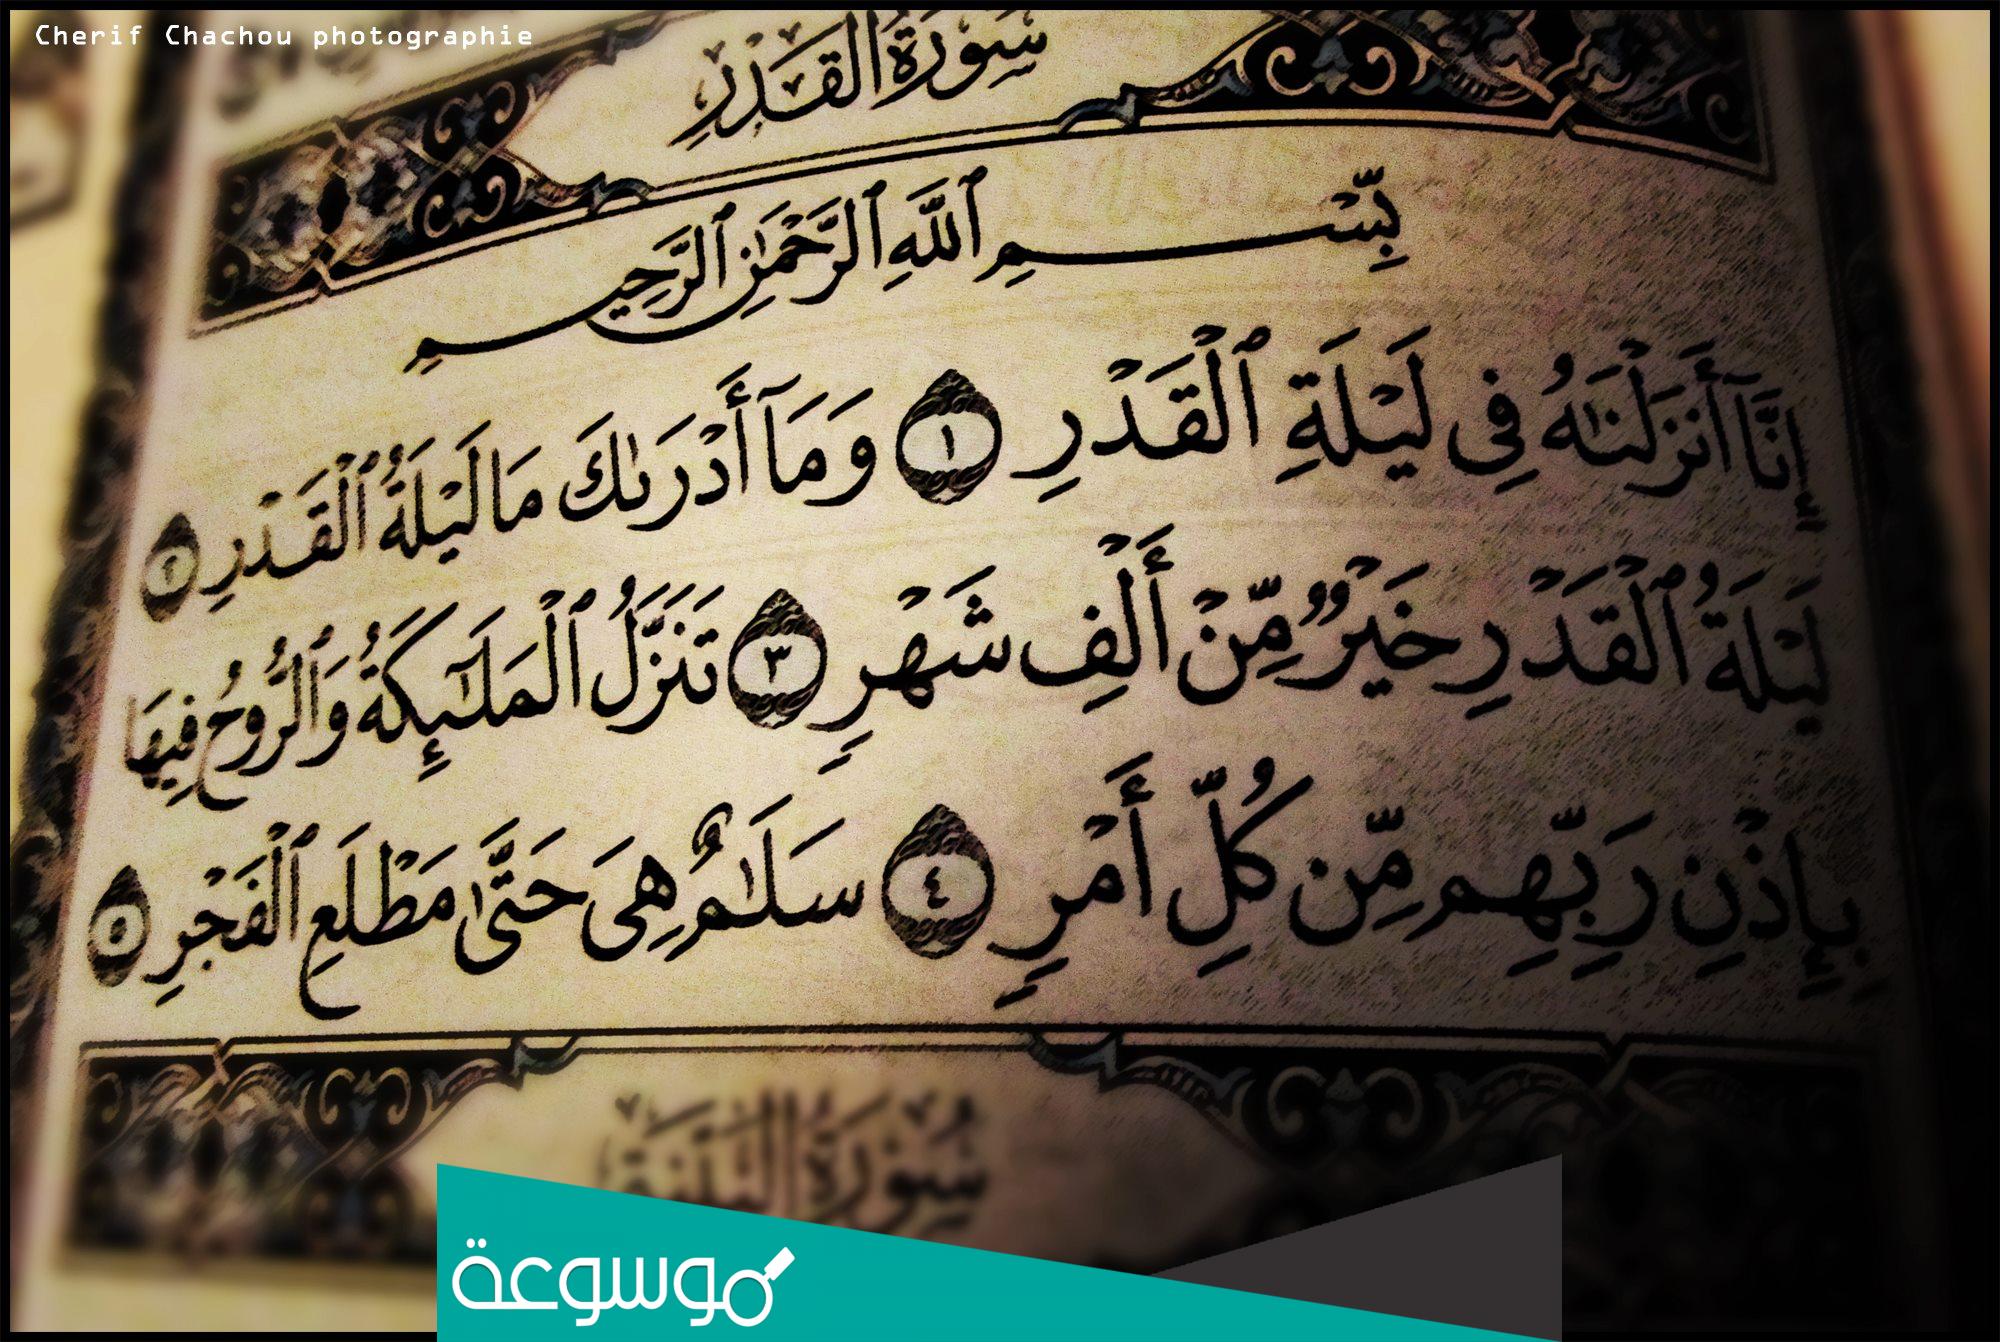 Cherif Chachou photographie
سُورَةُ القَدْرِ
بِسْمِ ٱللَّهِ ٱلرَّحْمَٰنِ ٱلرَّحِيمِ
إِنَّآ أَنزَلْنَٰهُ فِى لَيْلَةِ ٱلْقَدْرِ ١ وَمَآ أَدْرَىٰكَ مَا لَيْلَةُ ٱلْقَدْرِ ٢
لَيْلَةُ ٱلْقَدْرِ خَيْرٌ مِّنْ أَلْفِ شَهْرٍ ٣ تَنَزَّلُ ٱلْمَلَٰٓئِكَةُ وَٱلرُّوحُ فِيهَا
بِإِذْنِ رَبِّهِم مِّن كُلِّ أَمْرٍ ٤ سَلَٰمٌ هِىَ حَتَّىٰ مَطْلَعِ ٱلْفَجْرِ ٥
سُورَةُ البَيِّنَةِ
موسوعة